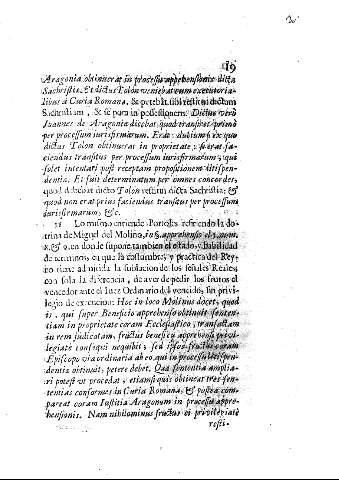 19
Aragonia obtinuerat in processu apprehensionis dicta
Sachristia. Et dictus Tolon veniebat cum executoria-
libus à Curia Romana, & petebat sibi restitui dictam
Sachristiam, & se poni in possessionem. Dictus verò
Ioannes de Aragonia dicebat, quod transitus primò
per processum iurisfirmarum. Erat dubium, ex quo
dictus Tolon obtinuerat in proprietate, si erat fa-
ciendus transitus per processum iurisfirmarum, qui
solet intentari post receptam propositionem litispen-
dentia. Et fuit determinatum per omnes concordes,
quod debebat dicto Tolon restitui dicta Sachristia, &
quod non erat prius faciendus transitus per processum
iurisfirmarum, &c.
Lo mismo entiende Portolès refiriendo la do-
trina de Miguel del Molino, in §. apprehensio el 3. num.
& 9. en donde supone tambien el estado, y habilidad
de terminos, en que la costumbre, y practica del Rey-
no tiene admitida la sublacion de los señales Reales,
con sola la diferencia, de aver de pedir los frutos el
vencedor ante el Iuez Ordinario del vencido, sin privi-
legio de execucion: Hoc in loco Molinus docet, quod
is, qui super Beneficio apprehenso obtinuit senten-
tiam in proprietate coram Ecclesiastico, transactam
in rem judicatam, fructus beneficij apprehensi privi-
legiatè consequi nequibit, sed ipsos fructus coram
Episcopo via ordinaria ab eo, qui in processu litispen-
dentia obtinuit, petere debet. Quæ sententia amplia-
ri potest ut procedat, etiamsi quis obtineat tres sen-
tentias conformes in Curia Romana, & postea com-
pareat coram Iustitia Aragonum in processu appre-
hensionis. Nam nihilominus fructus ei privilegiatè
resti-